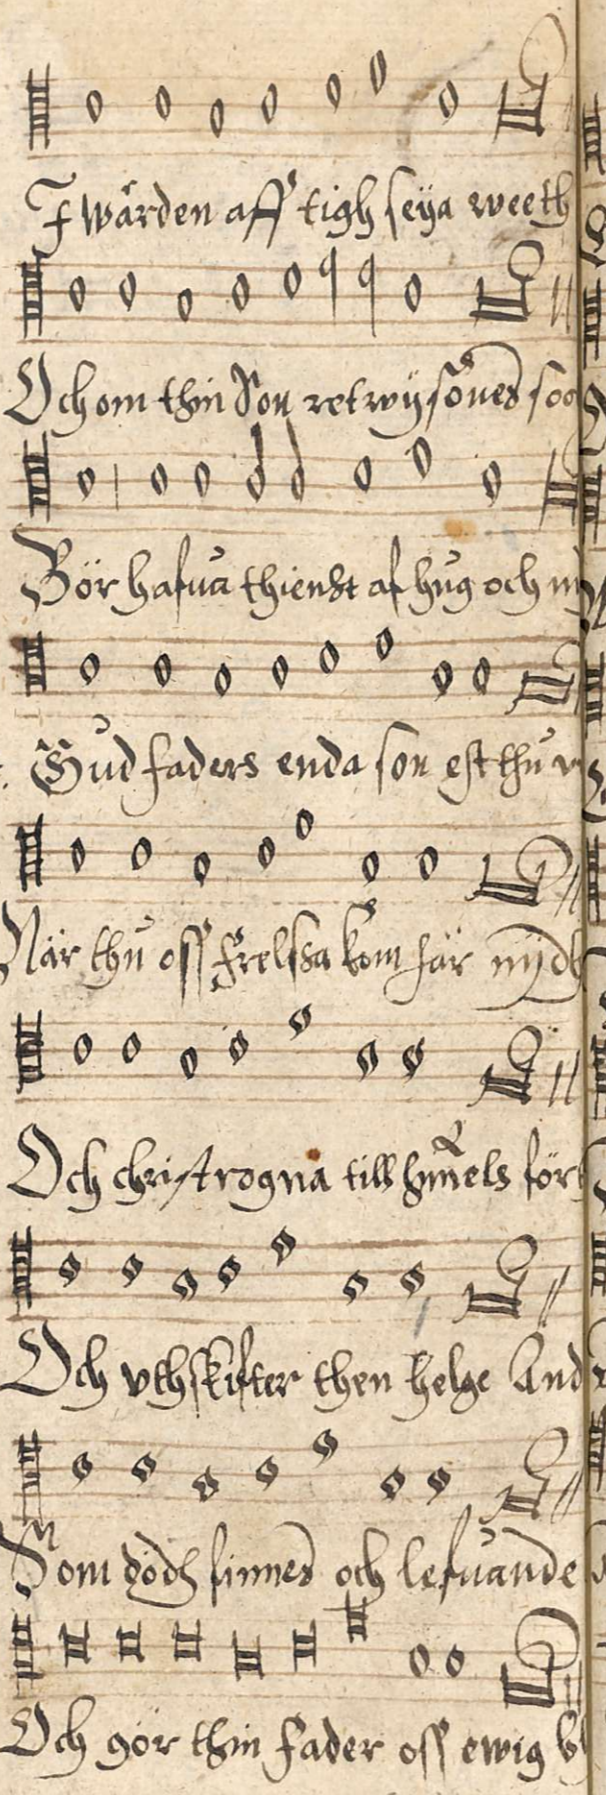 I wärden aff tigh seija weeth
Och om thin Son retwijsones soo
Bör hafua thienst af hug och
Gud faders enda son est thu
När thu oss frelssa kom här nijdh
Och christrogna till himmels för
Och vthskifter then helge And
Som dödh finnes och lefuande
Och gör thin fader oss ewig